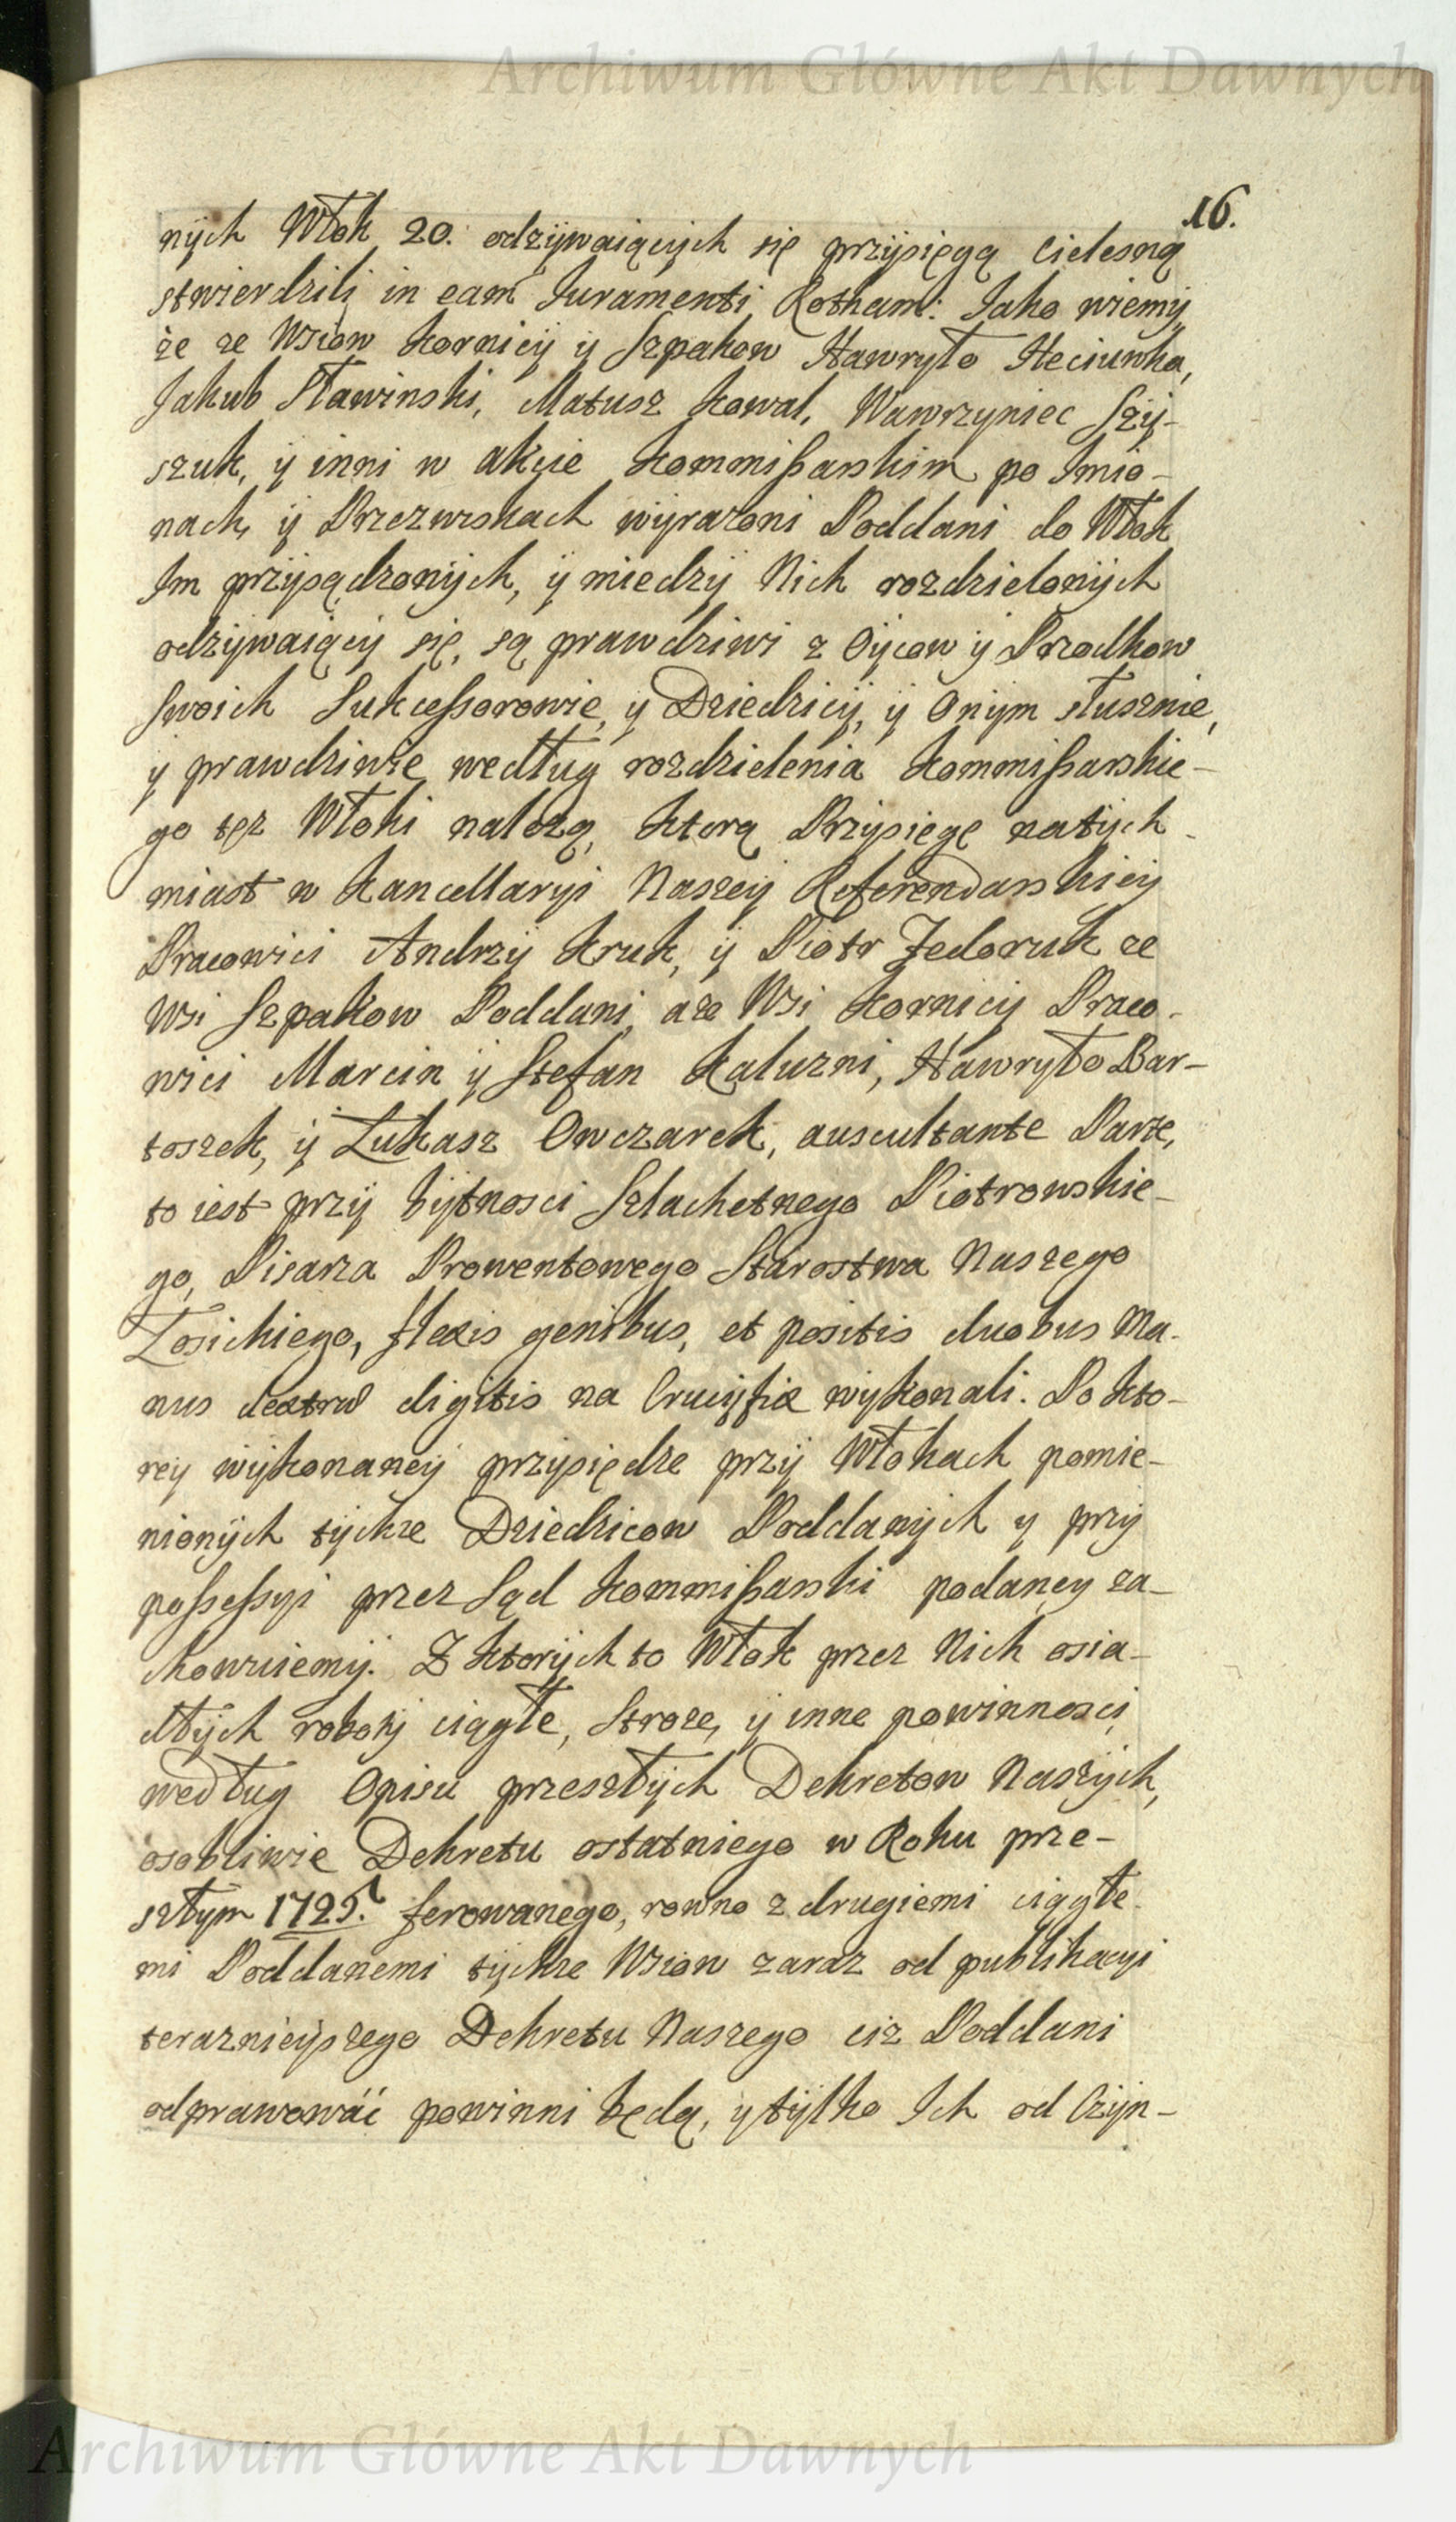 Archiwum Główne Akt Dawnych
16.
nÿch Włok 20. odzÿwaiącÿch się przÿsięgą Cielesną
stwierdzili in eam Iuramenti Rotham: Jako wiemÿ
że ze Wsiow Kornicÿ ÿ Szpakow Hawryło Heciunka,
Jakub Sławinski, Matusz Kowal, Wawrzyniec Szÿ-
szuk, ÿ inni w akcie Kommißarskim po Imio-
nach, ÿ Przezwiskach wÿrażoni Poddani do Włok
Im przÿsądzonÿch, ÿ miedzÿ Nich rozdzielonÿch
odzÿwaiącÿ się, są prawdziwi z Oÿcow ÿ Przodkow
Swoich Sukceßorowie, ÿ Dziedzicÿ, ÿ Onÿm słusznie,
ÿ prawdziwie według rozdzielenia Kommißarskie-
go też Włoki należą, Ktorą Przÿsięgę natÿch-
miast w Kancellaryi Naszeÿ Referendarskieÿ
Pracowici Andrzÿ Kruk, ÿ Piotr Fedoruk ze
Wsi Szpakow Poddani, a ze Wsi Kornicÿ Praco-
wici Marcin ÿ Stefan Kaluzni, Hawryło Bar-
toszek, ÿ Łukasz Owczarek, auscultante Parte,
to iest przÿ bÿtnosci Szlachetnego Piotrowskie-
go, Pisarza Prowentowego Starostwa Naszego
Łosickiego, flexis genibus, et positis duobus Ma-
nus dextræ digitis na Crucÿfix wÿkonali. Po kto-
reÿ wÿkonaneÿ przÿsiędze przÿ Włokach pomie-
nionÿch tÿchże Dziedzicow Poddanÿch y przÿ
poßeßyi przez Sąd Kommißarski podaney za-
chowuiemÿ. Z ktorÿch to Włok przez Nich osia-
dłÿch robotÿ ciągłe, Stroże, ÿ inne powinnosci
według Opisu przeszłÿch Dekretow Naszÿch,
osobliwie Dekretu ostatniego w Roku prze-
szłym 1725. ferowanego, rowno z drugiemi ciągłe-
mi Poddanemi tÿchże Wsiow zaraz od publikacyi
teraznieÿszego Dekretu Naszego ciż Poddani
odprawować powinni będą, ÿ tÿlko Ich od Czÿn-
Archiwum Główne Akt Dawnych